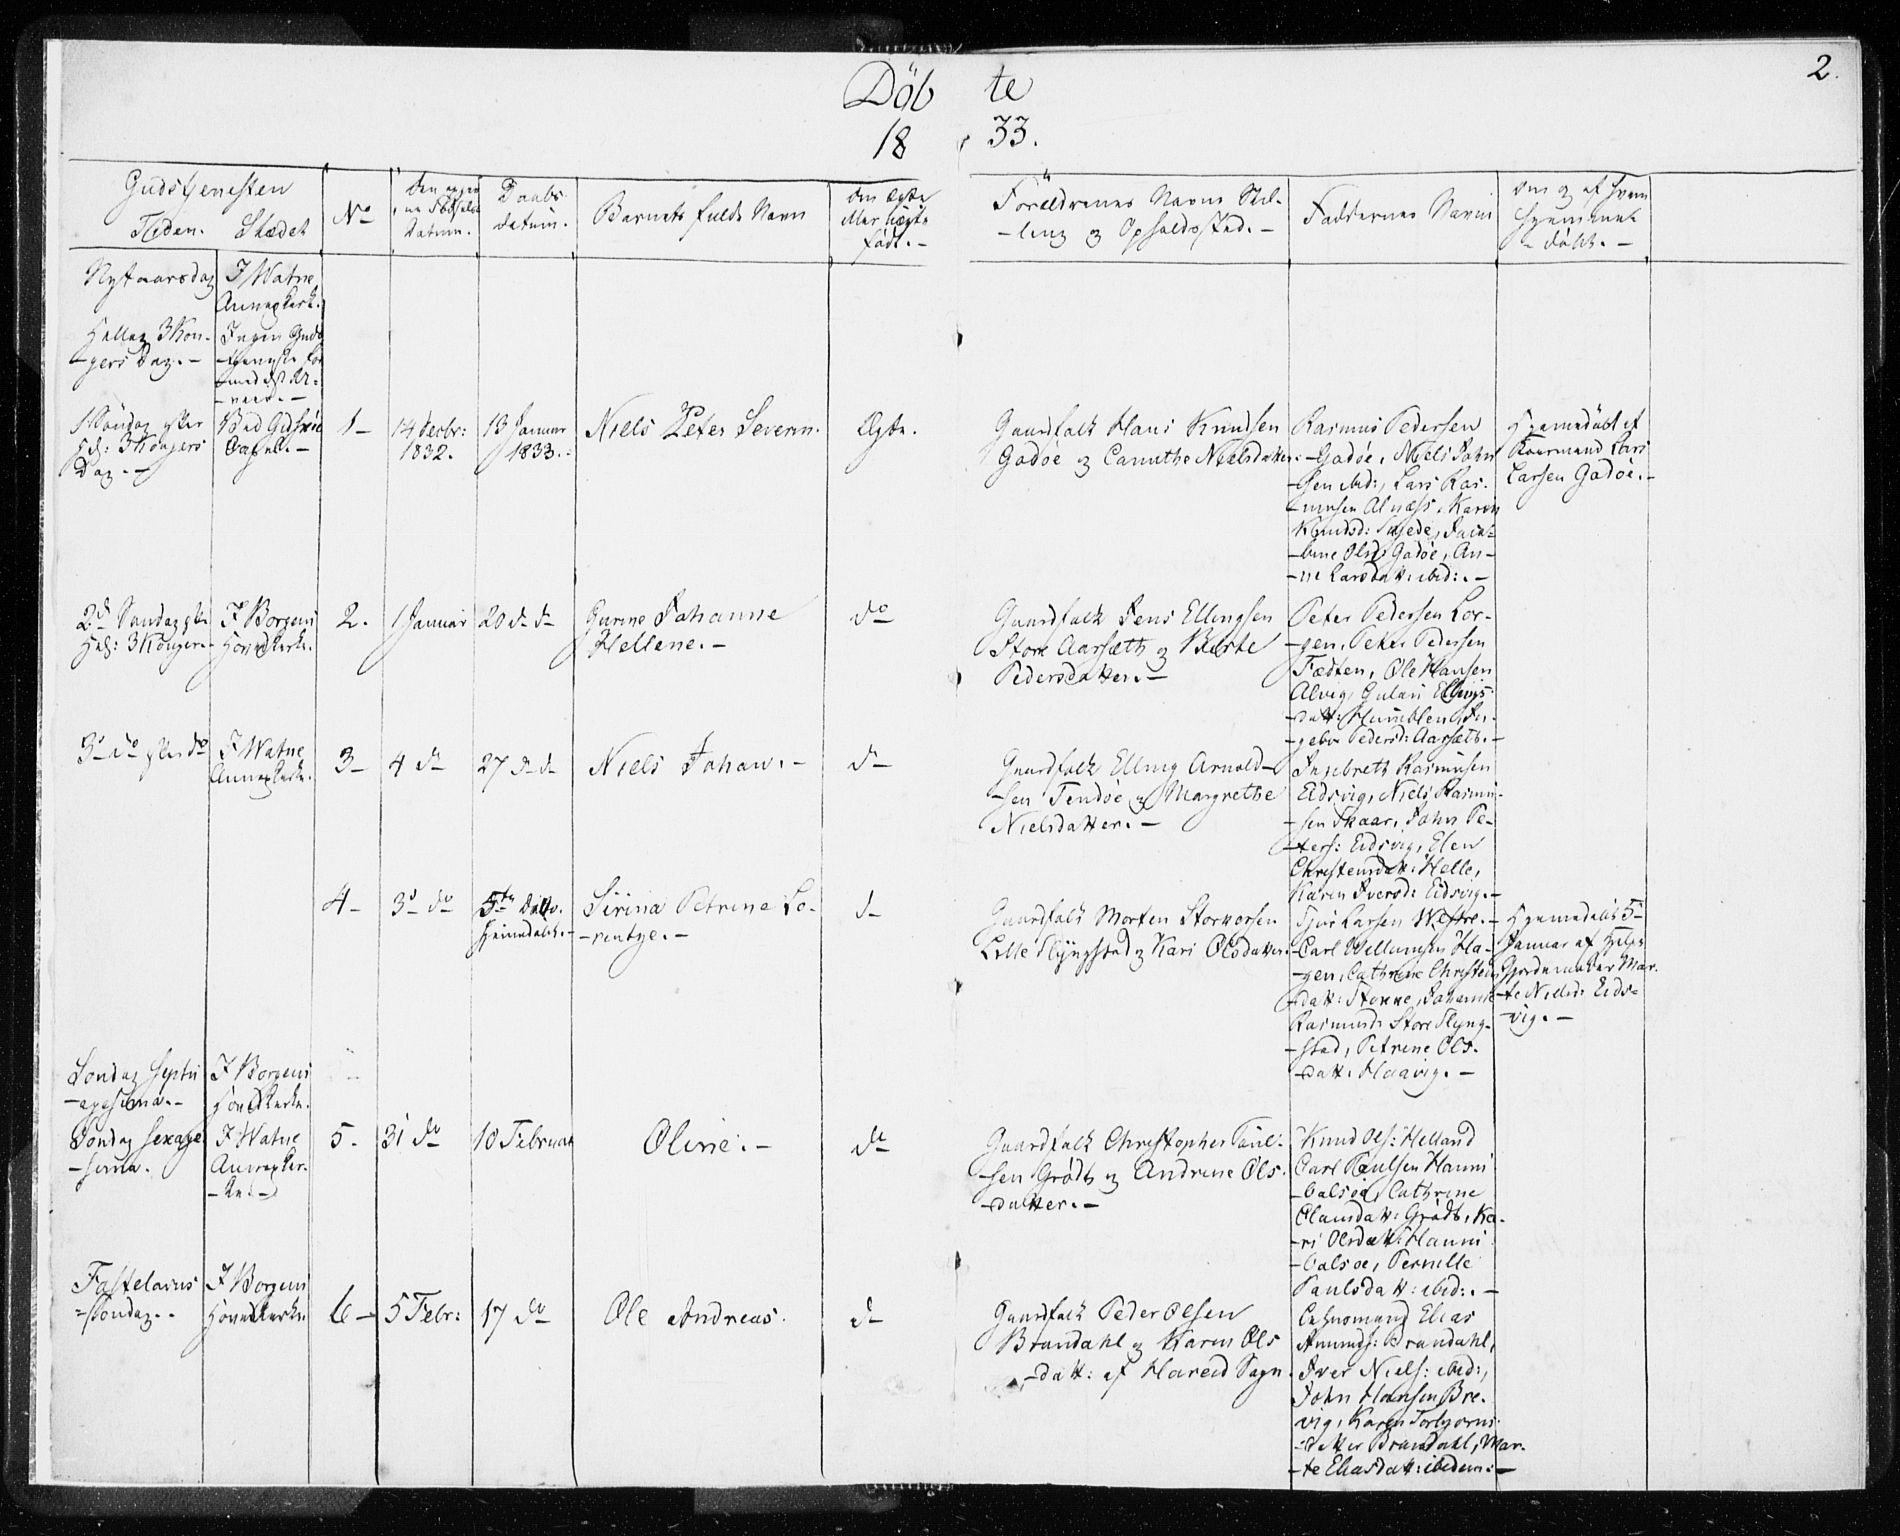 2.
Döb te
18 33.
Gudstjenesten
Tiden. Stædet
No
Datum.
Daabs
datum.
Barnets fulde Navn
om Ægte
eller uægte
født. -
Forældrenes Navne Stil-
- ling og Opholdssted. -
Faddernes Navne
om og af hvem
hjemme
- døbt. -
Nytaarsdag
I Watne
Annexkerk.
Hellig 3 Kon-
- gers Dag. -
Ingen Guds
1 Søndag efter
Hel: 3 Kongers
Dag. -
Ved Gidsøe
Capel. -
1 -
14 Decbr:
1832.
13 Januar
1833.
Niels Peter Severin.
Ægte.
Gaardfolk Hans Knudsen
Godøe og Canuthe Nielsdatter.
Rasmus Pedersen
- Godøe, Niels John
- sen ibid:, Lars Ras-
- musen Alnæss, Karen
Knudsd:
- bine Olsd: Godøe, An-
- ne Larsdatt: ibid: . -
Hjemmedøbt af
Lars
Larsen Godøe. -
2d Søndag efter
Hel: 3 Konger. -
I Borgens
Hovedkerk.
2.
1 Januar
20 do do
Gurine Johanne
Hellene. -
do
Gaardfolk Jens Ellingsen
Store Aarsæth og Berte
Pedersdatter. -
Peter Pedersen Lor-
- gen, Peter Pedersen
Tædten, Ole Hansen
Alvig, Guløri Ellings-
- datt: Humblen, In-
- gebor Pedersd: Aarsæth. -
3d do efter do
I Watne
Annexkerk.
3 -
4 do
27 do do
Niels Johan. -
do
Gaardfolk Elling Arnold-
- sen Tendøe og Margrethe
Nielsdatter. -
Ingebreth Rasmusen
Eidsvig, Niels Rasmu-
- sen Skaar, John Pe-
- ters: Eidsvig, Elen
Christensdatt: Helle,
Karen Iversd: Eidsvig. -
4 -
3d do
5te dito.
Hjemmedøbt. -
Sirina Petrine Lo-
- rentze. -
do
Gaardfolk Morten Storkorsen
Lille Flyngstad og Kari Olsdatter.
Sjur Larsen Westre. -
- Carl Wellumsen Ha-
- gen, Cathrine Christens
- datt: Stokke, Johanne
Rasmusd: Store Flyng-
- stad, Petrine Ols-
- datt: Haavig. -
Hjemmedøbt 5te
Januar af
Gjordemoder Mar-
- te Nielsd: Eids-
- vig. -
Søndag Septu
- agesima. -
I Borgens
Hovedkerke.
Søndag Sexage
- sima.
I Watne
Annexker-
- ke. -
5.
31 do
10 Februar
Oline. -
do
Gaardfolk Christopher Paul-
- sen Grødt og Andrine Ols-
- datter. -
Knud Ols: Helland
Carl Paulsen Hanni
- balsøe, Cathrine
Clausdatt: Grødt, Ka-
- ri Olsdatt: Hanni
- balsøe, Pernille
Paulsdatt: ibid: . -
Fastelavns
- søndag. -
I Borgens
Hovedkerke.
6 -
5 Febr:
17 do
Ole Andreas.
do
Gaardfolk Peder Olsen
Brandahl og Karen Ols
- datt: af Hareid Sogn
Elias
Amunds: Brandahl,
Iver Niels: ibid:,
John Hansen Bre-
vig, Karen Torbjørns
- datter Brandahl, Mar-
- te Eliasdatt: ibidem: -